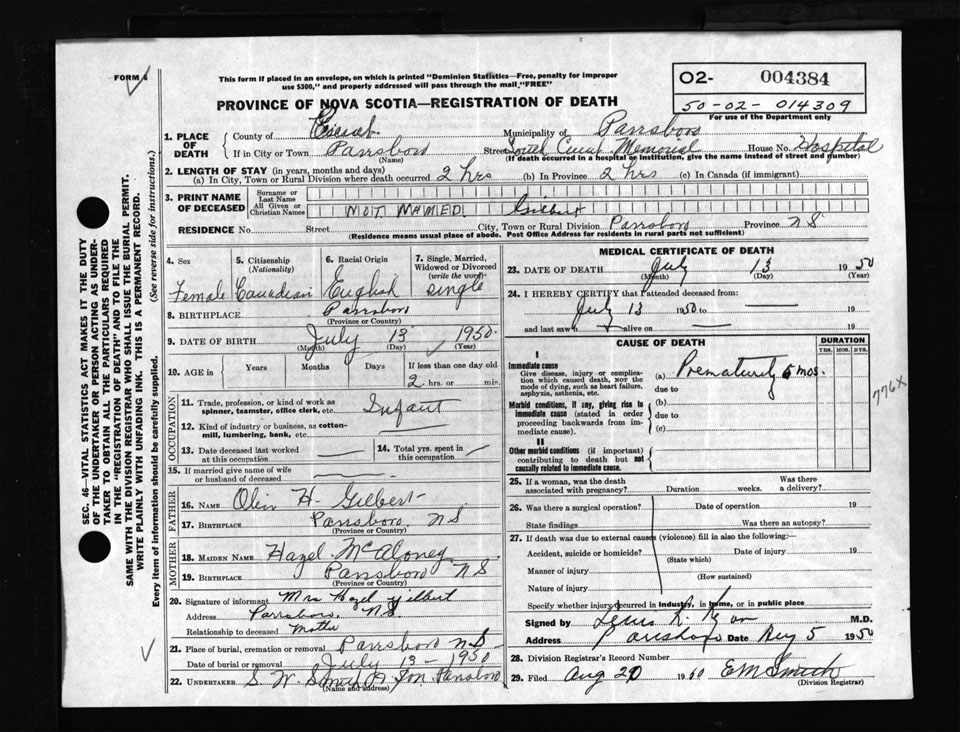 FORM 6
This form if placed in an envelope, on which is printed "Dominion Statistics—Free, penalty for improper
use $300," and properly addressed will pass through the mail "FREE"
PROVINCE OF NOVA SCOTIA—REGISTRATION OF DEATH
O2- 004384
50-02- 014309
For use of the Department only
1. PLACE OF DEATH
County of Municipality of Parrsboro
If in City or Town Parrsboro Street South Cumb Memorial House No. Hospital
(Name) (If death occurred in a hospital or institution, give the name instead of street and number)
2. LENGTH OF STAY (in years, months and days)
(a) In City, Town or Rural Division where death occurred 2 hrs (b) In Province 2 hrs (c) In Canada (if immigrant)
3. PRINT NAME OF DECEASED
Surname or Last Name
All Given or Christian Names NOT NAMED Gilbert
RESIDENCE No. Street City, Town or Rural Division Parrsboro Province NS
(Residence means usual place of abode. Post Office Address for residents in rural parts not sufficient)
4. Sex
Female
5. Citizenship (Nationality)
Canadian
6. Racial Origin
English
7. Single, Married, Widowed or Divorced (write the word)
single
8. BIRTHPLACE Parrsboro
(Province or Country)
9. DATE OF BIRTH July 13 1950
(Month) (Day) (Year)
10. AGE in Years Months Days If less than one day old
2 hrs. or min.
OCCUPATION
11. Trade, profession, or kind of work as
spinner, teamster, office clerk, etc. Infant
12. Kind of industry or business, as cotton-
mill, lumbering, bank, etc.
13. Date deceased last worked
at this occupation
14. Total yrs. spent in
this occupation
15. If married give name of wife
or husband of deceased
FATHER
16. NAME Olin H. Gilbert
17. BIRTHPLACE Parrsboro, NS
(Province or Country)
MOTHER
18. MAIDEN NAME Hazel McAloney
19. BIRTHPLACE Parrsboro NS
(Province or Country)
20. Signature of informant Mrs Hazel Gilbert
Address Parrsboro, N.S.
Relationship to deceased Mother
21. Place of burial, cremation or removal Parrsboro NS
Date of burial or removal July 13 - 1950
22. UNDERTAKER S. W. Smith & Son Parrsboro
(Name and address)
MEDICAL CERTIFICATE OF DEATH
23. DATE OF DEATH July 13 1950
(Month) (Day) (Year)
24. I HEREBY CERTIFY that I attended deceased from
July 13 1950 to 19
and last saw h alive on 19
CAUSE OF DEATH
DURATION
YRS. MOS. DYS.
I
Immediate cause
Give disease, injury or complica-
tion which caused death, NOT the
mode of dying, such as heart failure,
asphyxia, asthenia, etc.
(a) Prematurity 6 mos.
due to
Morbid conditions, if any, giving rise to
immediate cause (stated in order
proceeding backwards from im-
mediate cause).
(b)
due to
(c)
II
Other morbid conditions (if important)
contributing to death but not
causally related to immediate cause.
776X
25. If a woman, was the death
associated with pregnancy? Duration weeks. Was there
a delivery?
26. Was there a surgical operation? Date of operation 19
State findings Was there an autopsy?
27. If death was due to external causes (violence) fill in also the following:—
Accident, suicide or homicide? Date of injury 19
(State which)
Manner of injury
(How sustained)
Nature of injury
Specify whether injury occurred in industry, in home, or in public place
Signed by M.D.
Address Parrsboro Date Aug 5 1950
28. Division Registrar's Record Number
29. Filed Aug 20 1950 EM Smith
(Division Registrar)
SEC. 46—VITAL STATISTICS ACT MAKES IT THE DUTY
OF THE UNDERTAKER OR PERSON ACTING AS UNDER-
TAKER TO OBTAIN ALL THE PARTICULARS REQUIRED
IN THE "REGISTRATION OF DEATH" AND TO FILE THE
SAME WITH THE DIVISION REGISTRAR WHO SHALL ISSUE THE BURIAL PERMIT.
WRITE PLAINLY WITH UNFADING INK. THIS IS A PERMANENT RECORD.
Every item of information should be carefully supplied. (See reverse side for instructions.)